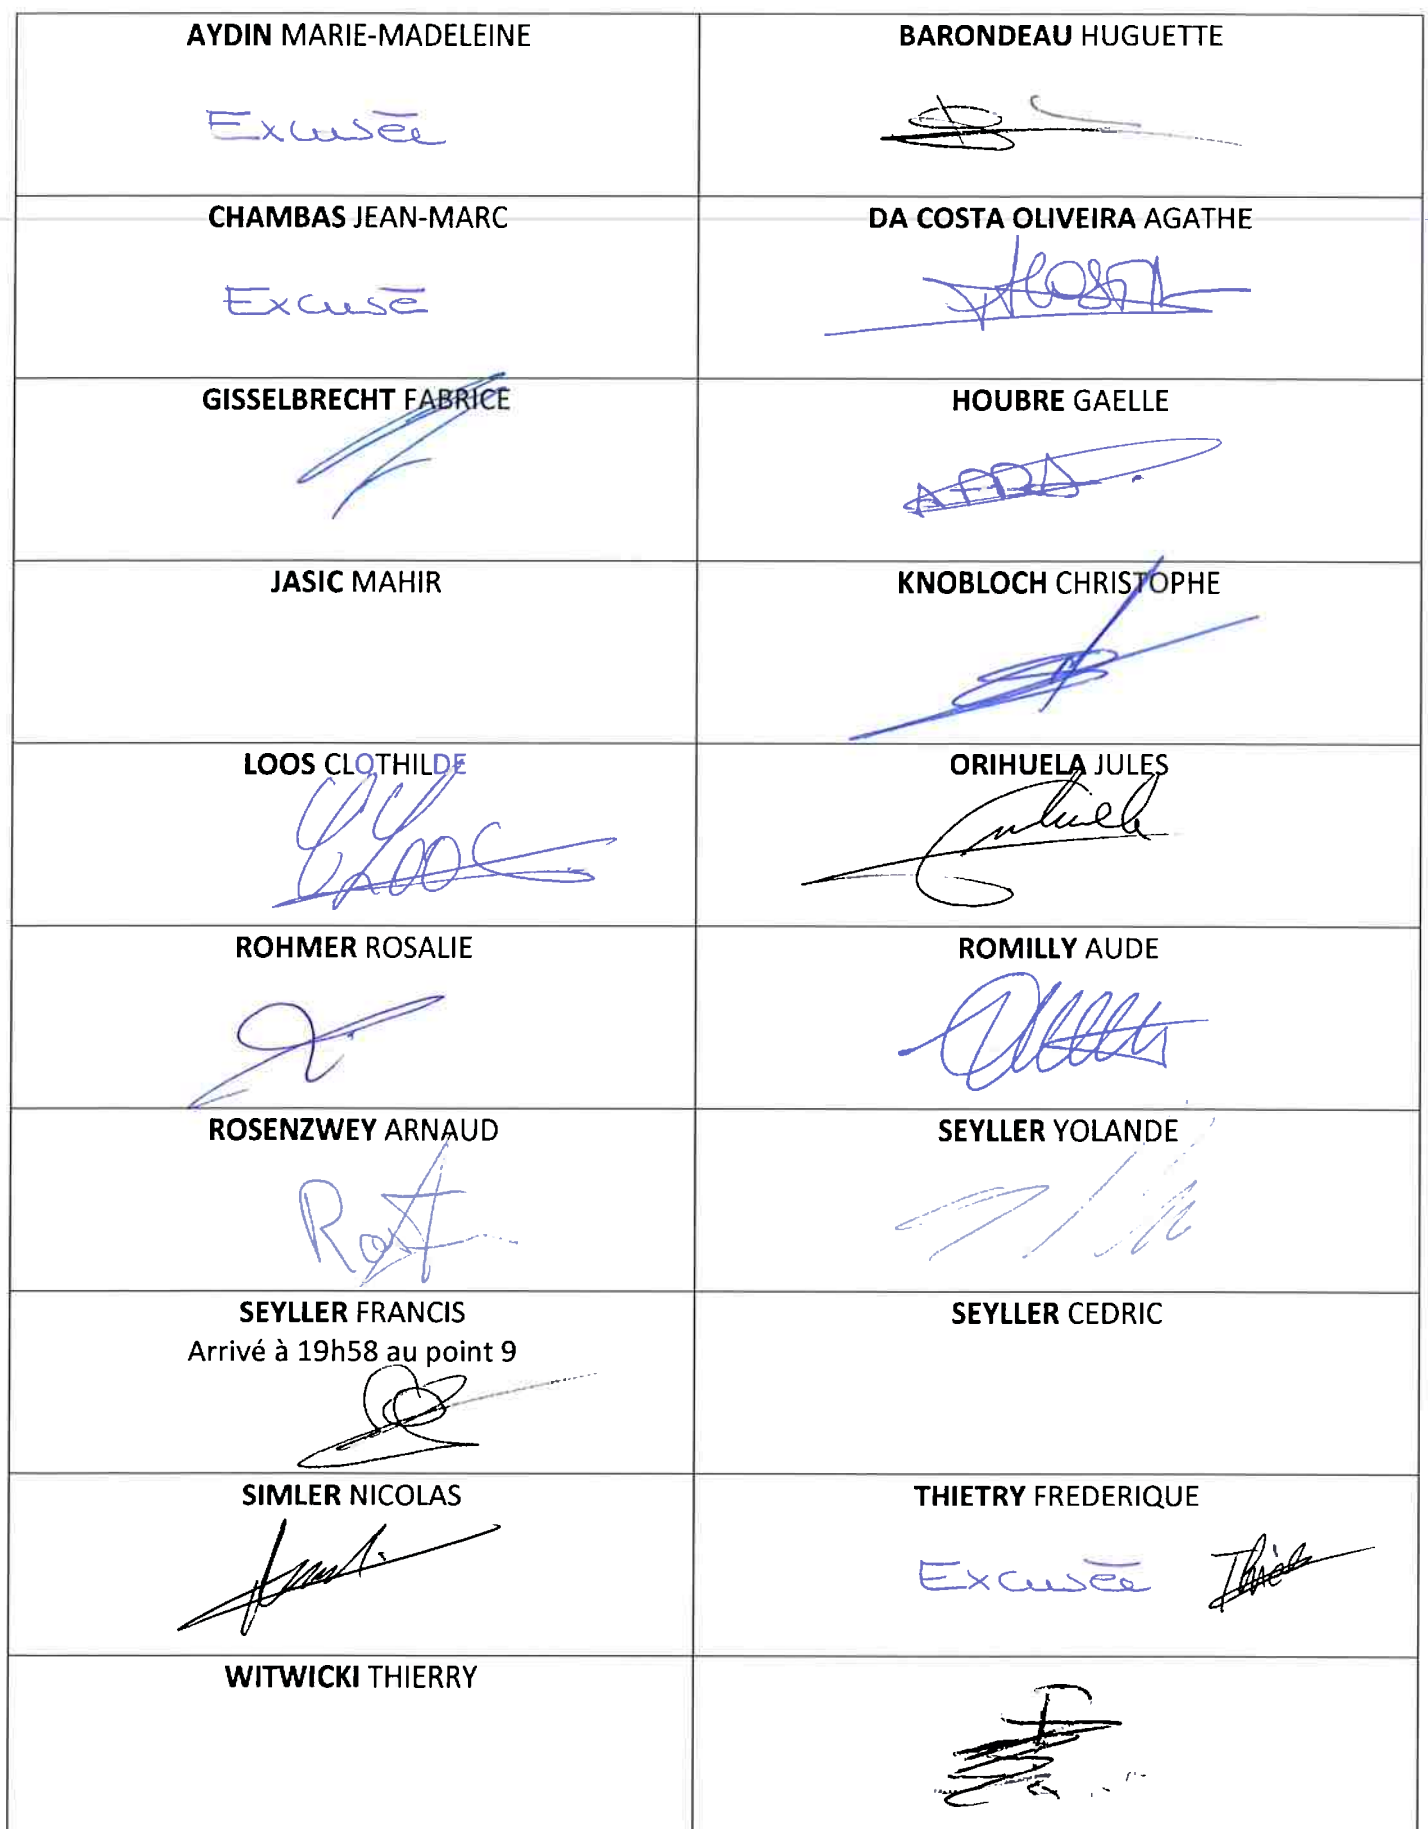 AYDIN MARIE-MADELEINE
Excusée
BARONDEAU HUGUETTE
CHAMBAS JEAN-MARC
Excusé
DA COSTA OLIVEIRA AGATHE
GISSELBRECHT FABRICE
HOUBRE GAELLE
JASIC MAHIR
KNOBLOCH CHRISTOPHE
LOOS CLOTHILDE
ORIHUELA JULES
ROHMER ROSALIE
ROMILLY AUDE
ROSENZWEY ARNAUD
SEYLLER YOLANDE
SEYLLER FRANCIS
Arrivé à 19h58 au point 9
SEYLLER CEDRIC
SIMLER NICOLAS
THIETRY FREDERIQUE
Excusée
WITWICKI THIERRY